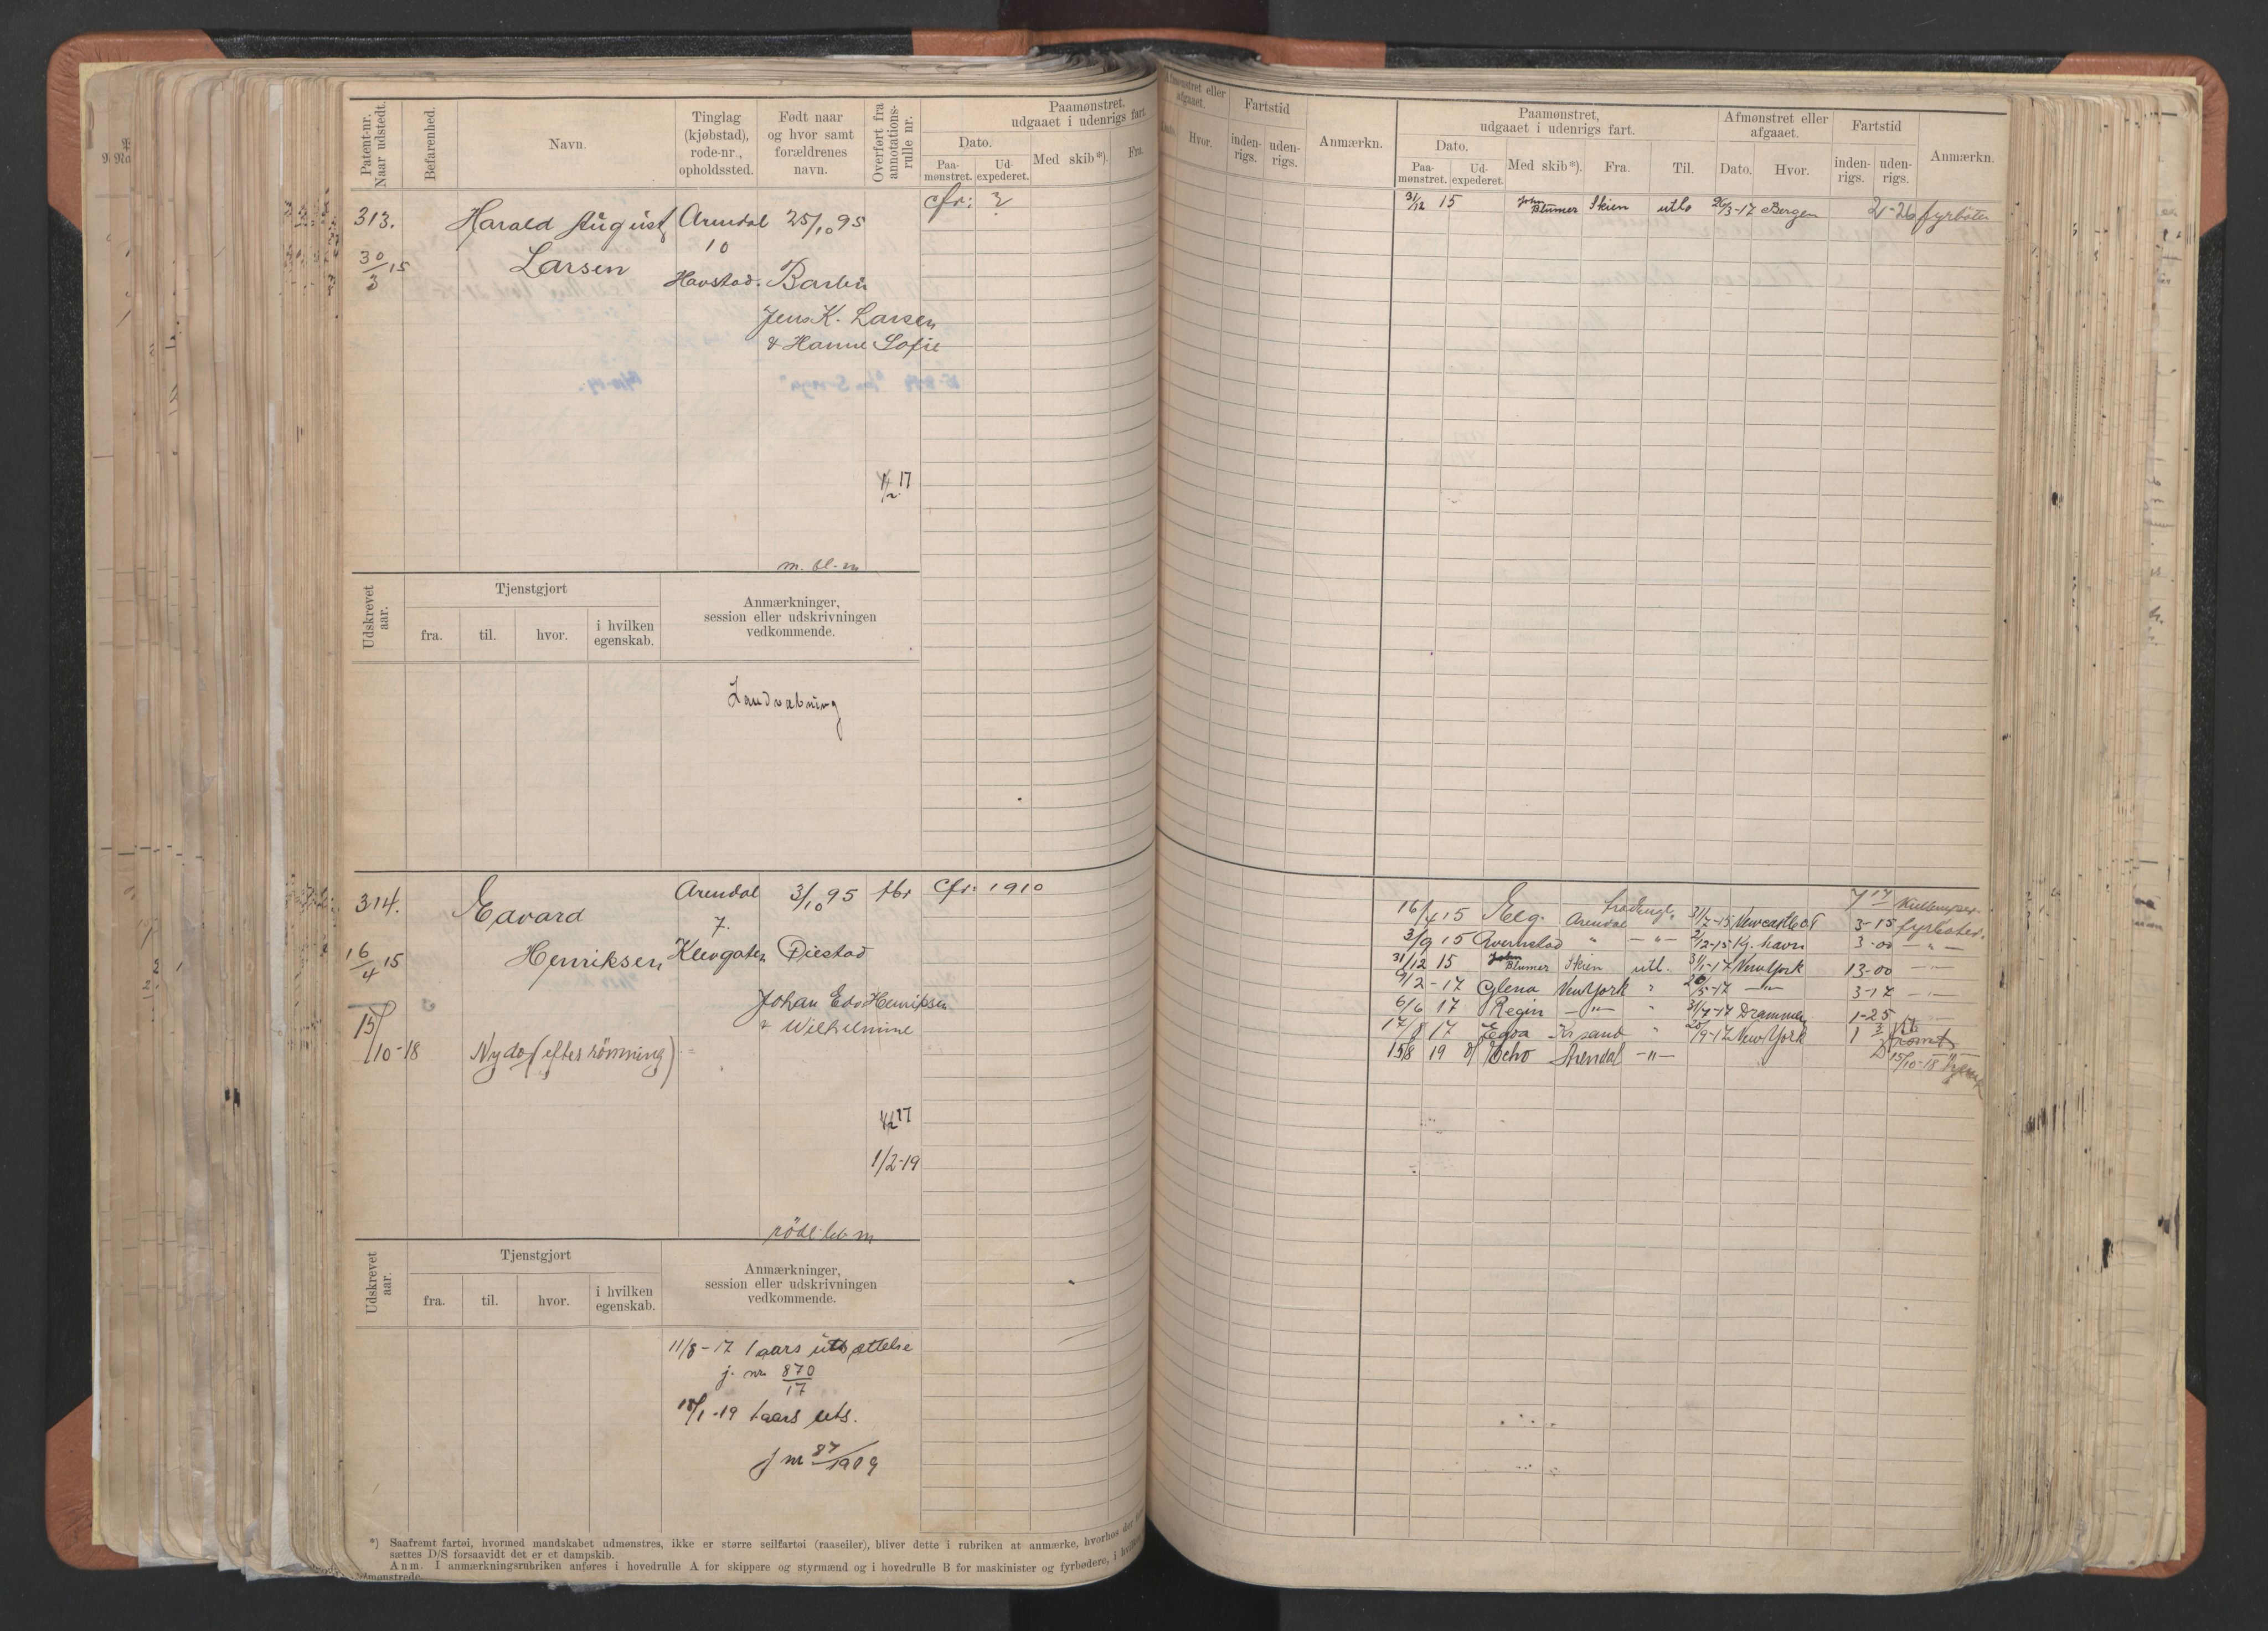 Patent-nr. Naar udstedt.
Befarenhed.
Navn.
Tinglag (kjøbstad), rode-nr., opholdssted.
Født naar og hvor samt forældrenes navn.
Overført fra annotations-rulle nr.
Paamønstret. udgaaet i udenrigs fart.
Dato.
Paa-mønstret.
Ud-expederet.
Med skib*).
Fra.
313.
Harald August
Arendal
25/10 95
cfr: 2
30/3 15
Larsen
10
Havstad.
Barbu
Jens K. Larsen
& Hanne Sofie
1/2 17
m. bl. m
Udskrevet aar.
Tjenstgjort
fra.
til.
hvor.
i hvilken egenskab.
Anmærkninger, session eller udskrivningen vedkommende.
Landvæbning
314.
Edvard
Arendal
3/10 95
Cfr: 1910
16/4 15
Henriksen
7.
Klevgaten
Øiestad
Johan Edv Henriksen
& Wilhelmine
15/10-18
Nydo (efter römning)
1/2 17
1/2-19
Udskrevet aar.
Tjenstgjort
fra.
til.
hvor.
i hvilken egenskab.
Anmærkninger, session eller udskrivningen vedkommende.
11/8-17 1 aars utsættelse
j. nr. 870/17
18/1-19 1 aars uts.
j nr 87/1909
*) Saafremt fartøi, hvormed mandskabet udmønstres, ikke er større seilfartøi (raaseiler), bliver dette i rubriken at anmærke, hvorhos der
sættes D/S forsaavidt det er et dampskib.
Anm. I anmærkningsrubriken anføres i hovedrulle A for skippere og styrmænd og i hovedrulle B for maskinister og fyrbødere, i
afmønstrede.
Afmønstret eller afgaaet.
Dato.
Hvor.
Fartstid
inden-rigs.
uden-rigs.
Anmærkn.
Paamønstret, udgaaet i udenrigs fart.
Dato.
Paa-mønstret.
Ud-expederet.
Med skib*).
Fra.
Til.
Afmønstret eller afgaaet.
Dato.
Hvor.
Fartstid
inden-rigs.
uden-rigs.
Anmærkn.
31/12 15 John Blumer Skien utl. 26/3-17 Bergen 2-26 fyrböter
16/4 15 Elg. Arendal 31/7-15 Newcastle 3-15 fyrböter.
3/9 15 Avernstad " -"- 2/12-15 Kj. havn 3-00 -"-
31/12 15 John Blumer Skien utl. 31/1-17 New York 13-00 -"-
9/2-17 Glena New York " 26/5-17 -"- 3-17 -"-
6/6 17 Regin -"- " 31/7-17 Drammen 1-25 -"-
17/8 17 Egda Kr sand " 20/9-17 New York 1 3
15/8 19 Echo Arendal -"-
15/10-18